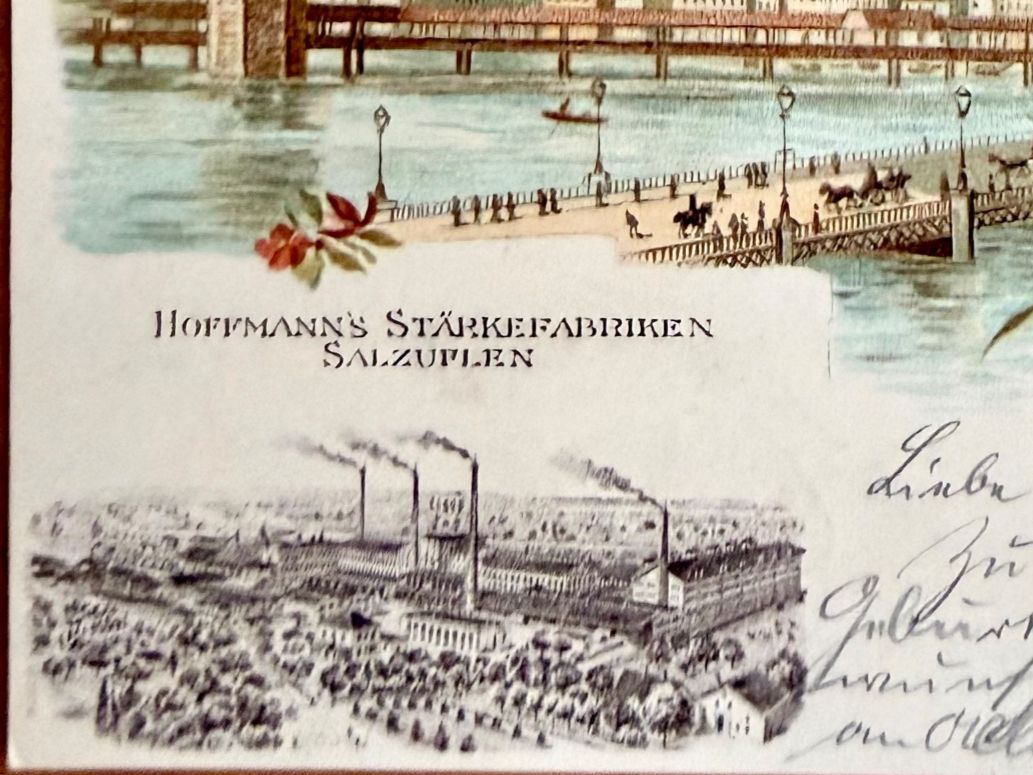 HOFFMANN'S STÄRKEFABRIKEN
SALZUFLEN
Liebe
Zu
Geburt
wunsch
an